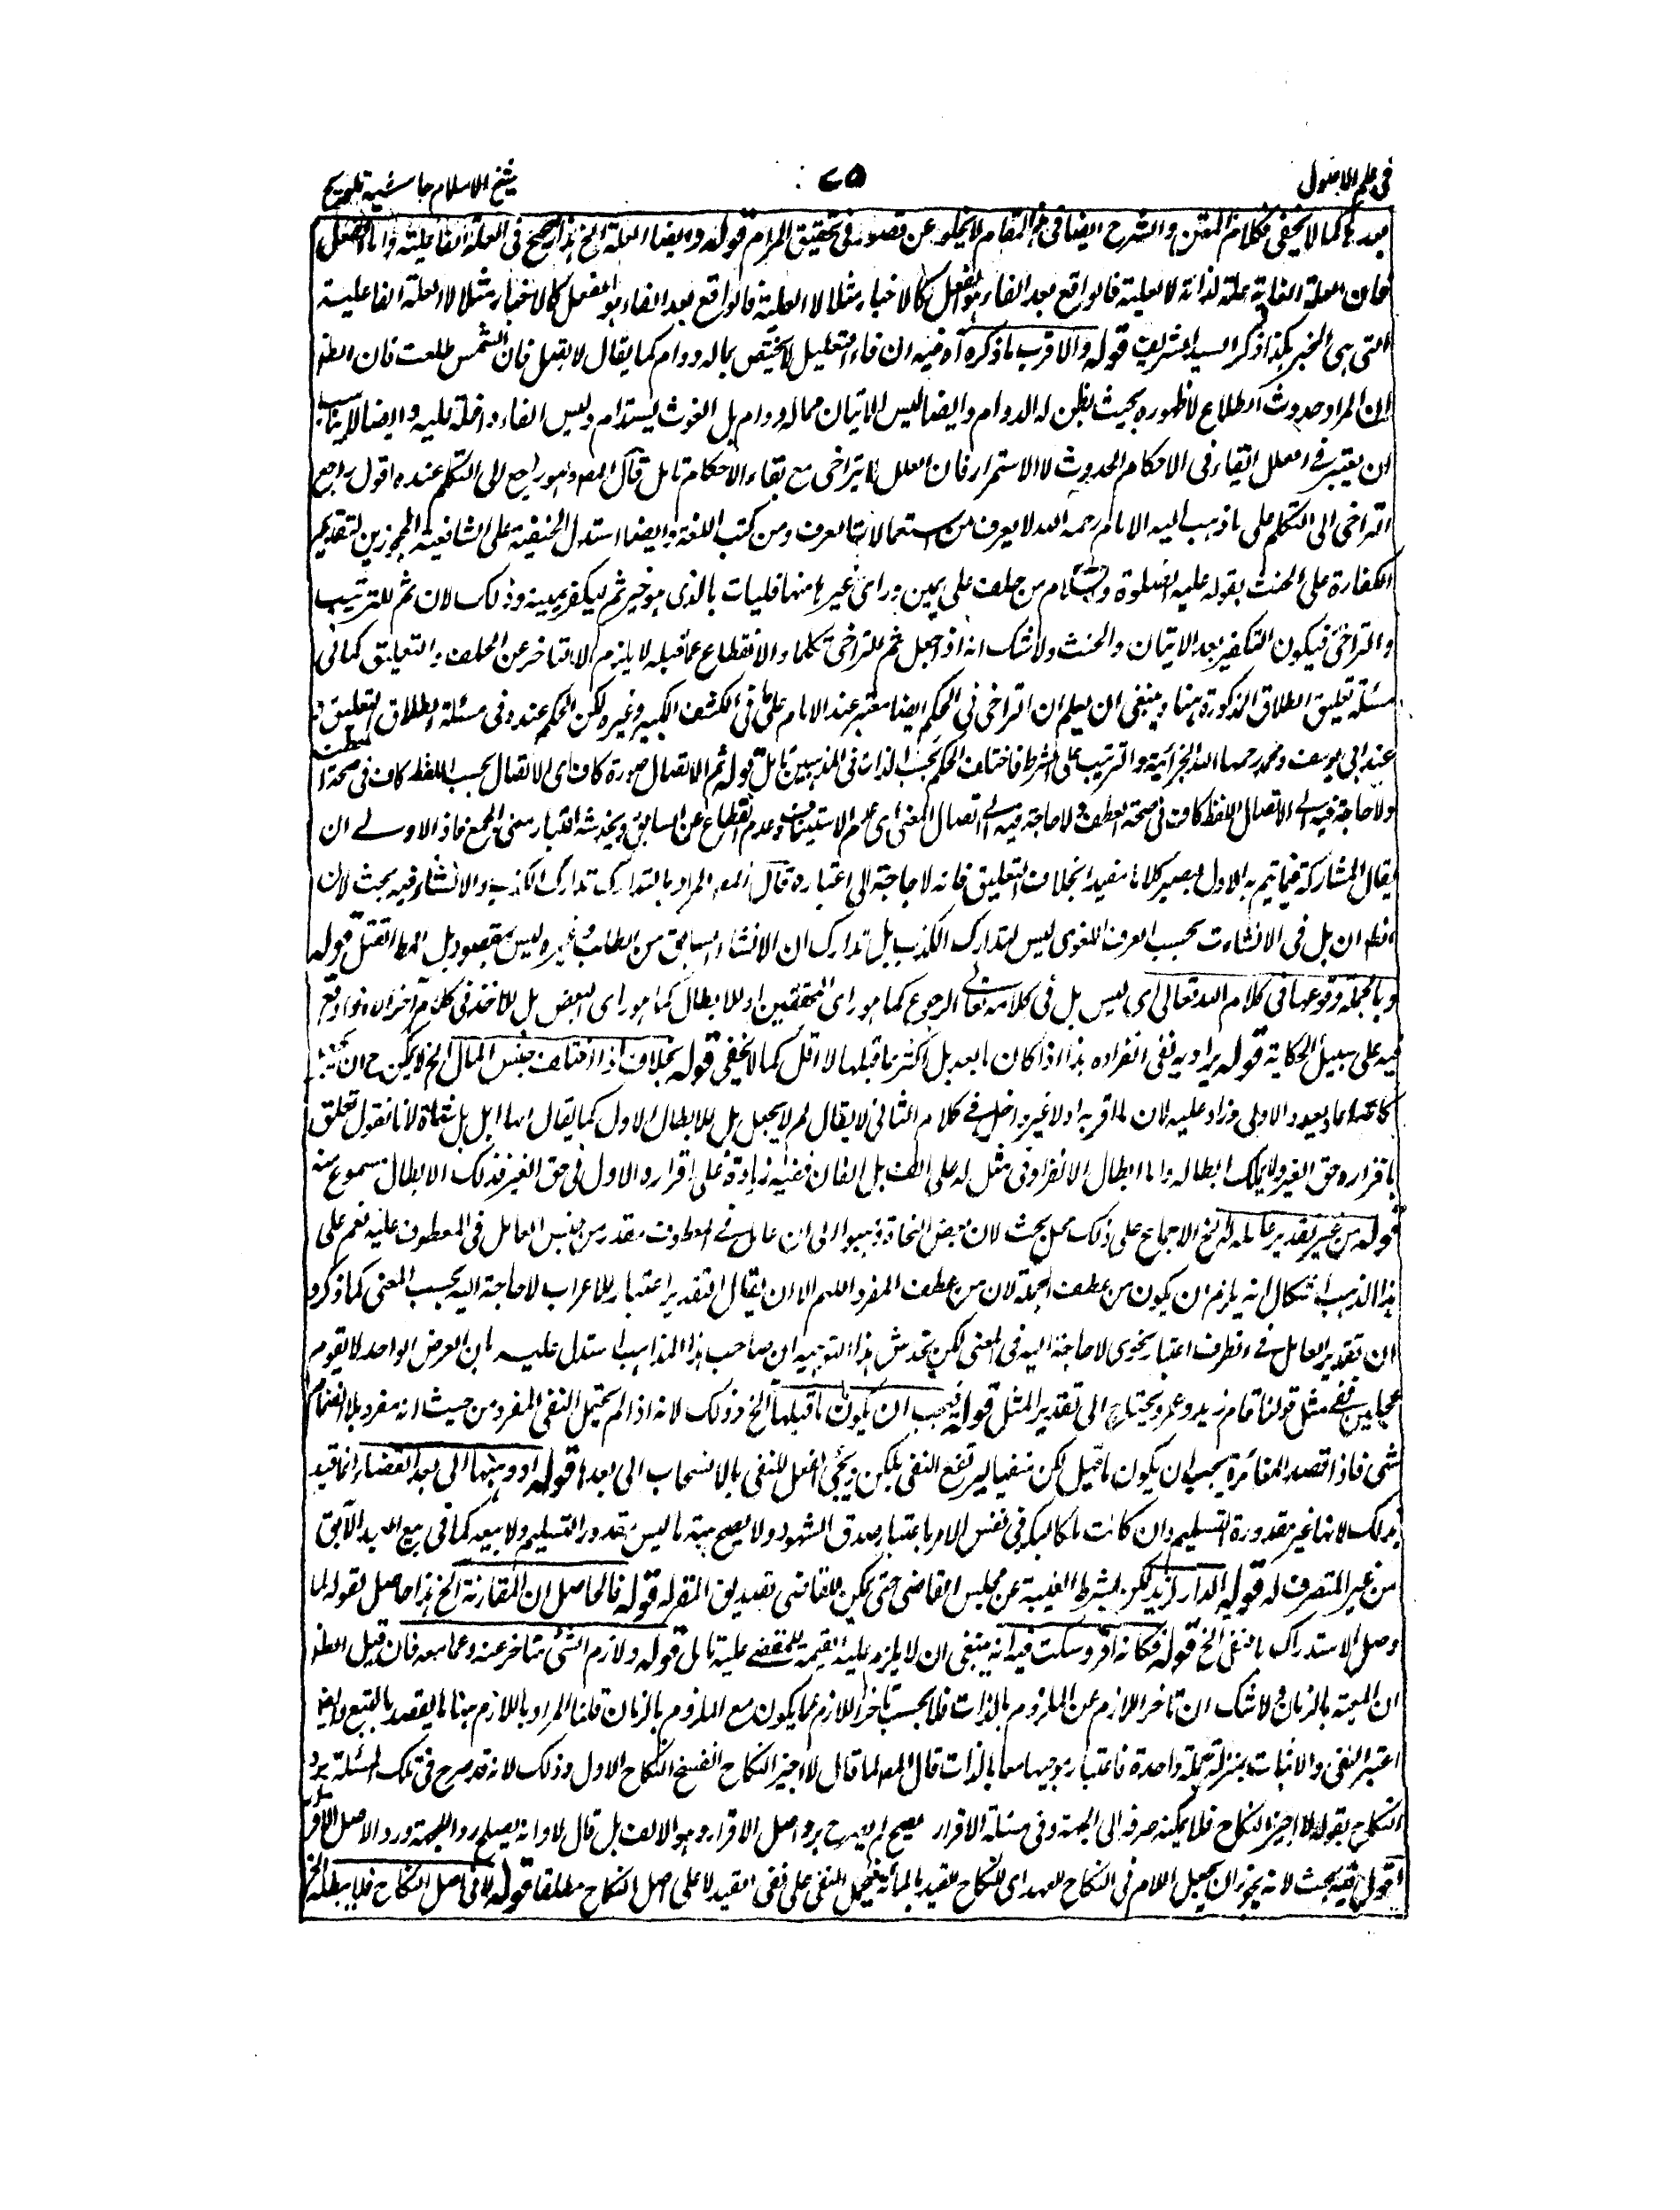 في علم الاصول
٧٥
شيخ الاسلام حاشيه تلويح
بعدها كما لا يخفى فكلام المتن والشرح ايضا في هذا المقام لا يخلو عن قصور في تحقيق المرام قوله وايضا العلة الخ هذا صحيح في العلة الفاعلية واما
فان العلة الغاية علة لذاته لا لعلية فالواقع بعد الفاء هو الفعل كالاخبار مثلا لا العلية فالواقع بعد الفاء هو الفعل كالاخبار مثلا لا العلة الفاعلية
التي هي المخبر هكذا ذكر السيد الشريف قوله والاقرب ما ذكره آه فيه ان فاء التعليل لا يختص بما له دوام كما يقال لا بقتل فان الشمس طلعت فان الظ
ان المراد حدوث الطلاع لا ظهوره بحيث يظن له الدوام وايضا ليس الاتيان مما له دوام بل الغوث يستدام وليس الفاء داخلة عليه وايضا لا يناسب
ان يعتبر في العلل البقاء وفي الاحكام الحدوث لا الاستمرار فان العلل لا يتراخى مع بقاء الاحكام تامل قال المص وهو راجع الى التكلم عنده اقول راجع
التراخى الى التكلم على ما ذهب اليه الامام رحمه الله لا يعرف من استعمالات العرف ومن كتب اللغة وايضا استدل الحنفية على الشافعية المجوزين لتقديم
الكفارة على الحنث بقوله عليه الصلوة والسلام من حلف على يمين وراى غيرها خيرا منها فليات بالذي هو خير ثم ليكفر يمينه وذلك لان ثم للترتيب
والتراخى فيكون التكفير بعد الاتيان والحنث ولا شك انه اذا جعل ثم للتراخى تكلما والانقطاع عما قبله لا يلزم الا التاخر عن الحلف والتعليق كما في
مسئلة تعليق الطلاق المذكورة هنا وينبغي ان يعلم ان التراخى في الحكم ايضا معتبر عند الامام على ما في الكشف الكبير وغيره لكن الحكم عنده في مسئلة الطلاق التعليق و
عند ابي يوسف ومحمد رحمهما الله الجزائية والترتيب على الشرط فاختلف الحكم بحسب الذات في المذهبين تامل قوله ثم الاتصال صورة كاف اى الاتصال بحسب اللفظ كاف في صحة العطف
ولا حاجة فيه الى الاتصال اللفظ كاف في صحة العطف ولا حاجة فيه الى اتصال المعنى اى عدم الاستيناف وعدم انقطاع عن السابق ويخدشه اعتبار معنى الجمع فاذ الاولى ان
يقال المشاركة فيما يتم به الاول ليصير كلاما مفيدا بخلاف التعليق فانه لا حاجة الى اعتباره قال المص المراد بالتدارك تدارك الكذب والانشاء فيه بحث لان
الظ ان بل في الانشاءت بحسب العرف اللغوى ليس لتدارك الكذب بل تدارك ان الانشاء السابق من الطلب وغيره ليس بمقصود بل المط اقتل قوله
وبالجملة وقوعها في كلام الله تعالى اى ليس بل في كلامه تعالى الرجوع كما هو راى المحققين او للابطال كما هو راى البعض بل للاخذ في كلام آخر او انه واقع
فيه على سبيل الحكاية قوله يراد به نفى انفراده هذا اذا كان ما بعد بل اكثر مما قبلها لا اقل كما لا يخفى قوله بخلاف اذا اختلف جنس المال الخ لا يمكن ح ان
الاول وزاد عليه لان ما اقر به اولا غير داخل في كلام الثاني لا يقال لم لا يجعل بل للابطال الاول كما يقال ابل بل شاة لانا نقول تعلق
باقراره حق الغير ولا يملك ابطاله واما ابطال الانفراد في مثل له على الف بل الفان ففيه زيادة على اقراره الاول في حق الغير فذلك الابطال مسموع منه
قوله من غير تقدير عامله الخ الاجماع على ذلك محل بحث لان بعض النحاة ذهبوا الى ان عامل في المعطوف مقدر من جنس العامل في المعطوف عليه نعم على
هذا المذهب اشكال انه يلزم ان يكون من عطف الجملة لان من عطف المفرد اللهم الا ان يقال التقدير اعتبار للاعراب لا حاجة اليه بحسب المعنى كما ذكروا
ان تقدير العامل في الظرف اعتبار نحوى لا حاجة اليه في المعنى لكن يخدش هذا التوجيه ان صاحب هذا المذهب استدل عليه بان العرض الواحد لا يقوم
بمحلين ففي مثل قولنا قام زيد وعمرو يحتاج الى تقدير المثل قوله فيجب ان يكون ما قبلها الخ وذلك لانه اذا لم يحتمل النفى المفرد من حيث انه مفرد بلا انضمام
شئ فاذا قصد المغائرة يجب ان يكون ما قبل لكن منفيا ليرتفع النفى بلكن ويجئ الفعل للنفى بالانسحاب الى بعدها قوله او وهبها الى بعد القضاء انما قيد
بذلك لانها غير مقدورة التسليم وان كانت ملكا لبكر في نفس الامر باعتبار صدق الشهود ولا يصح هبة ما ليس مقدور التسليم ولا بيعه كما في بيع العبد الآبق
من غير المتصرف له قوله الدار لزيد لكن بشرط الغيبة عن مجلس القاضى حتى يمكن للقاضى تصديق المقر له قوله فالحاصل ان المقارنة الخ هذا حاصل لقوله لما
وصل الاستدراك بالنفى الخ قوله فكانه اقر وسكت فيه انه ينبغى ان لا يلزم عليه القيمة للمقضى عليه تامل قوله ولازم الشئ متاخر عنه وعما معه فان قيل الظ
ان المعية بالزمان ولا شك ان تاخر اللازم عن الملزوم بالذات فلا يجب تاخر اللازم عما يكون مع الملزوم بالزمان قلنا المراد باللازم هنا ما يقصد بالتبع وايضا
اعتبر النفى والاثبات بمنزلة جملة واحدة فاعتبار موجبهما معا بالذات قال المص لما قال لا اجيز النكاح انفسخ النكاح الاول وذلك لانه قد صرح في تلك المسئلة برد
النكاح بقوله لا اجيز النكاح فلا يمكنه صرفه الى الجهة وفي مسئلة الاقرار لم يصرح برد اصل الاقرار وهو الالف بل قال لا وانه يصلح رد الجهة ورد الاصل
اقول فيه بحث لانه يجوز ان يجعل اللام في النكاح للعهد اى النكاح المقيد بالمائة فيحمل النفى على نفى المقيد لا على اصل النكاح مطلقا قوله لا في اصل النكاح فلا يبطله الخ